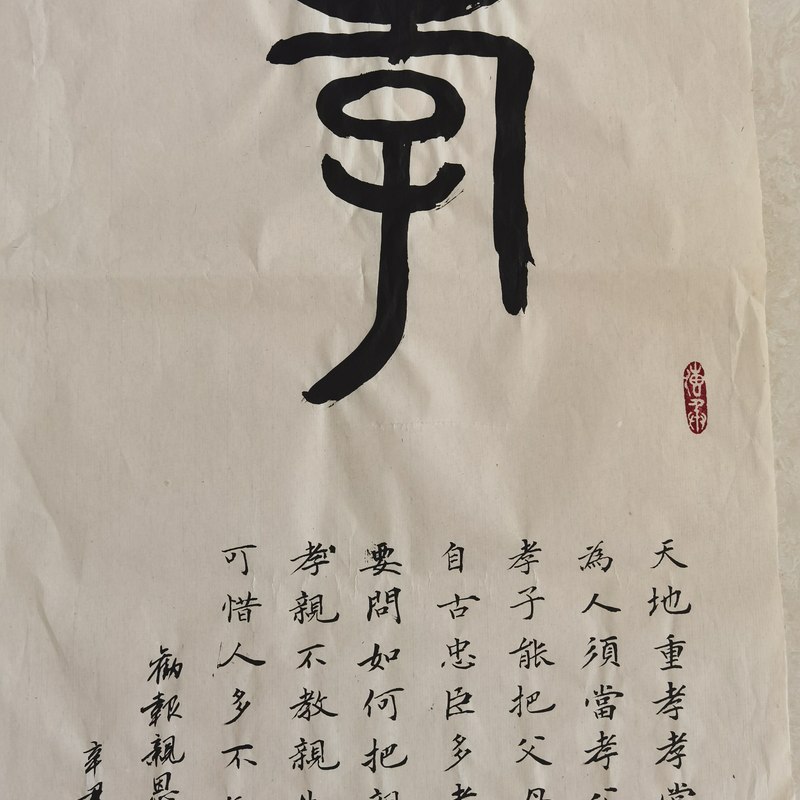 孝
天地重孝孝當
為人須當孝父
孝子能把父母
自古忠臣多孝
要問如何把親
孝親不教親
可惜人多不
勸報親恩
辛